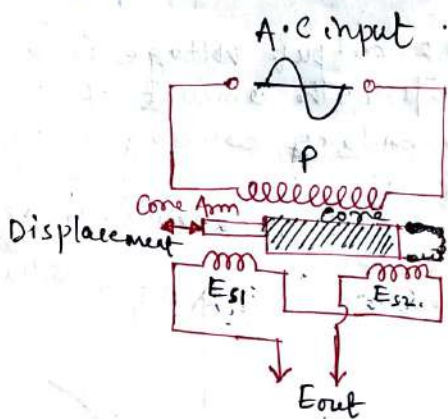 A.C input.
P
Core Arm
core
Displacement
ES1
ES2.
Eout